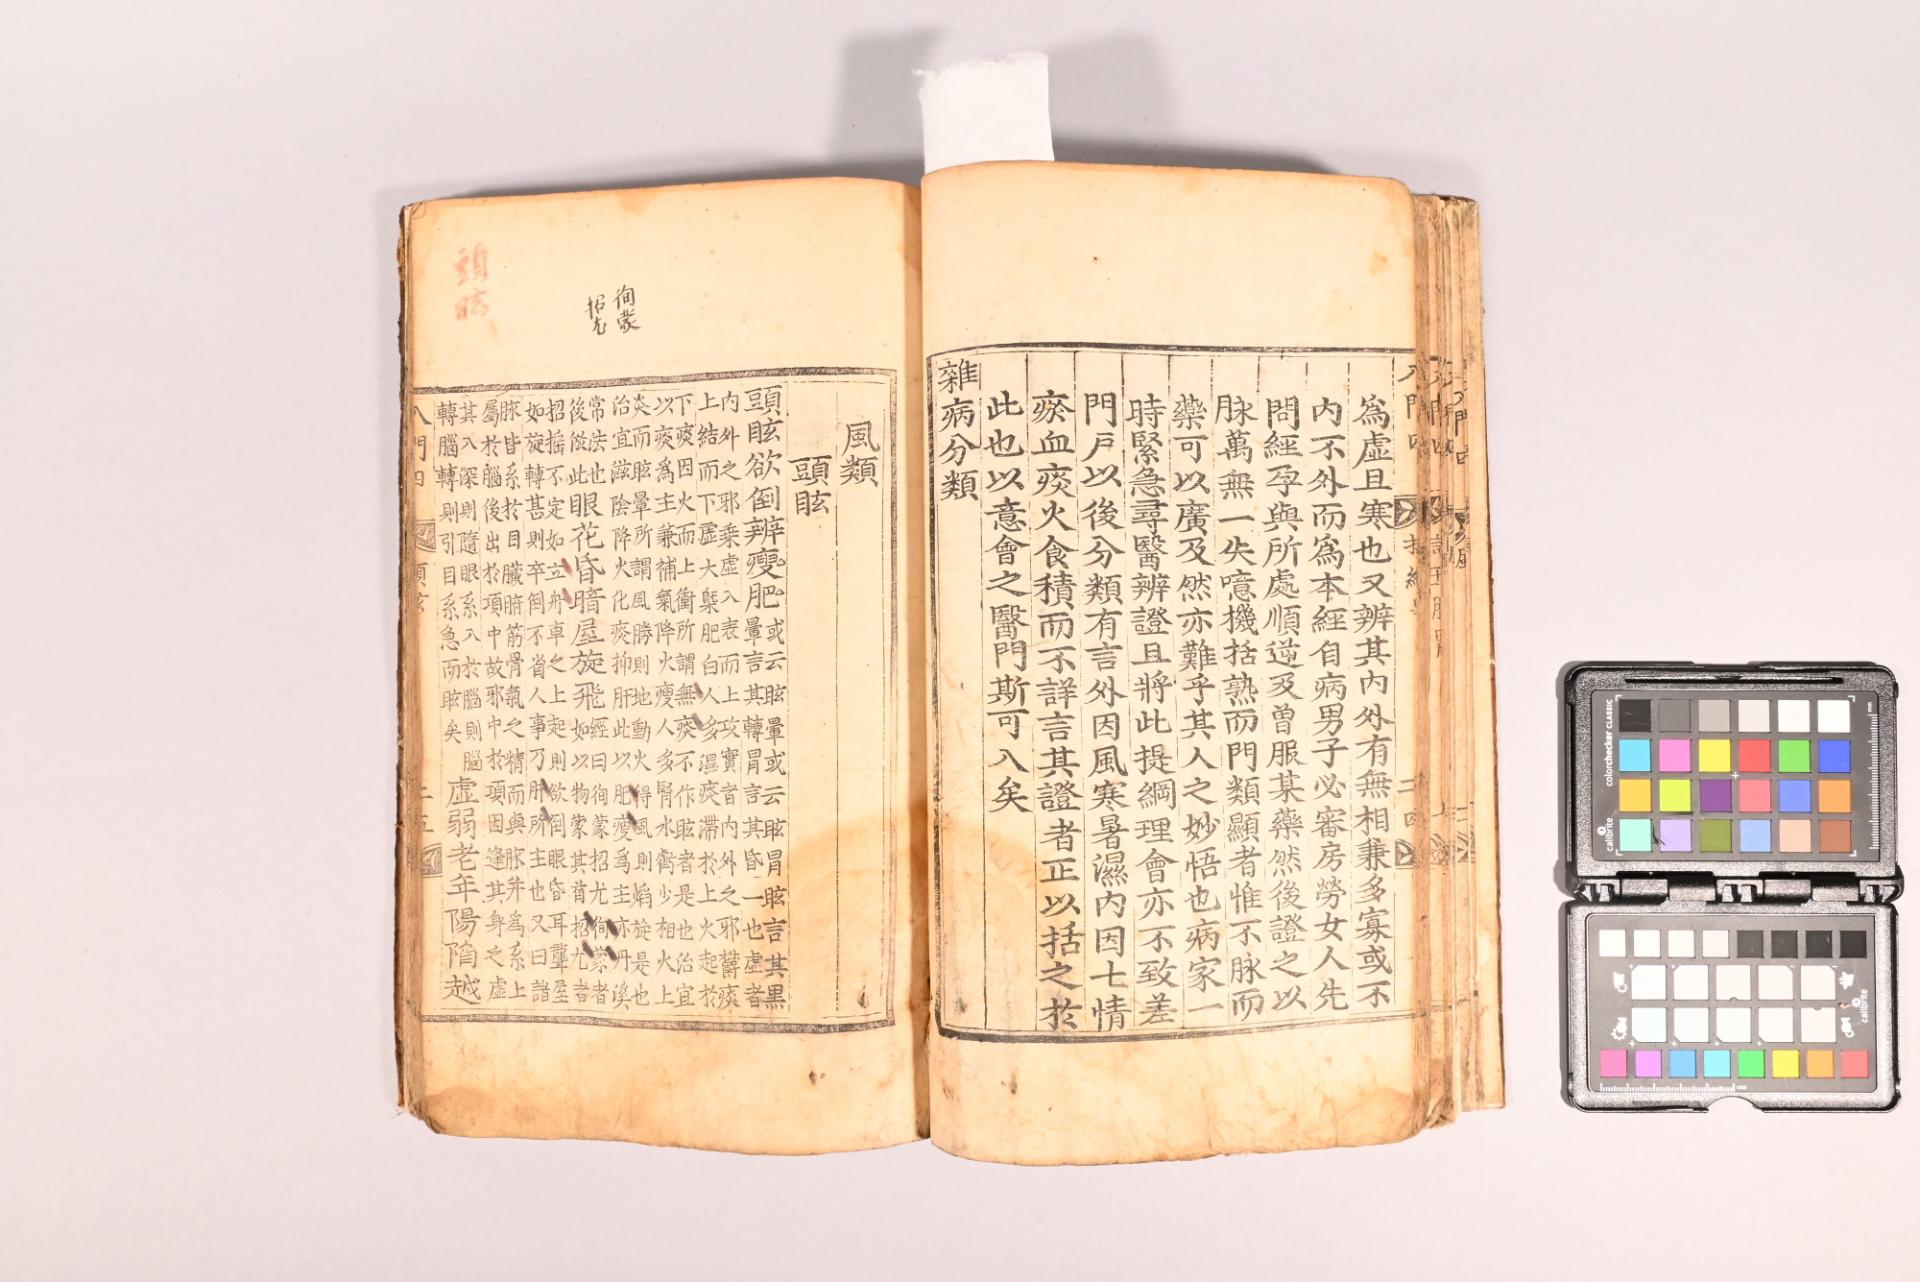 爲虛且寒也又辨其内外有無相兼多寡或不
内不外而爲本經自病男子必審房勞女人先
問經孕與所處順逆及曽服某藥然後證之以
脉萬無一失噫機括熟而門類顯者惟不脉而
藥可以廣及然亦難乎其人之妙悟也病家一
時緊急尋醫辨證且將此提綱理會亦不致差
門戸以後分類有言外因風寒暑濕内因七情
瘀血痰火食積而不詳言其證者正以括之於
此也以意會之醫門斯可入矣
雜病分類
風類
頭眩
頭眩欲倒辨瘦肥
或云眩暈或云眩冒眩言其黑
暈言其轉冒言其昏一也虛者
内外之邪乘虛入表而上攻實者内外之邪鬱痰
上結而下虛大槩肥白人多濕痰滯於上火起於
下痰因火而上衝所謂無痰不作眩者是也治宜
以痰爲主兼補氣降火瘦人多腎水虧少相火上
炎而眩暈所謂風勝則地動火得風則焰旋是也
治宜滋陰降火化痰抑肝此以肥瘦爲主亦丹溪
常法也
後倣此
眼花昏暗屋旋飛
經曰徇蒙招尤徇蒙者
如以物蒙其首招尤者
招搖不定如立舟車之上起則欲倒眼昏耳聾屋
如旋轉甚則卒倒不省人事乃肝所主也又曰諸
脉皆系於目臟腑筋骨氣之精而與脉并爲系上
屬於腦後出於項中故邪中於項因逢其身之虛
其入深則隨眼系入於腦則腦
轉腦轉則引目系急而眩矣
虛弱老年陽陷越
八門四
頭眩
二五
頭眩
徇蒙
招尤
二四
calibrite
colorchecker CLASSIC
mm
calibrite